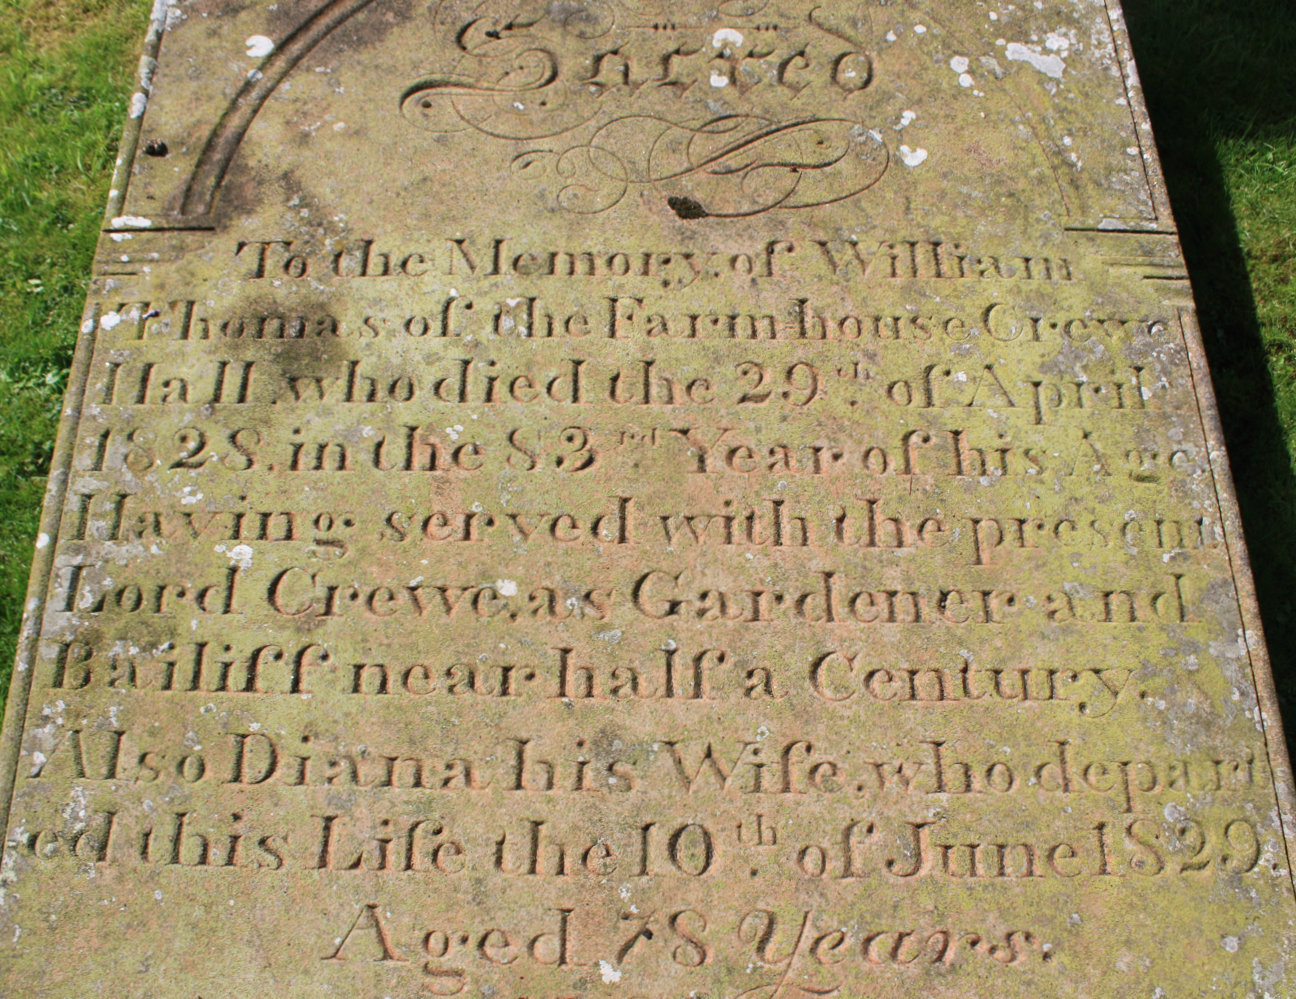 Sacred
To the Memory, of William
Thomas, of the Farm-house Crew
Hall, who died the 29th. of April
1828, in the 83rd Year of his Age
Having, served with the present
Lord Crewe, as Gardener and
Bailiff near half a Century,
Also Diana his Wife, who depart
ed this Life the 10th. of June 1829
Aged 78 Years.